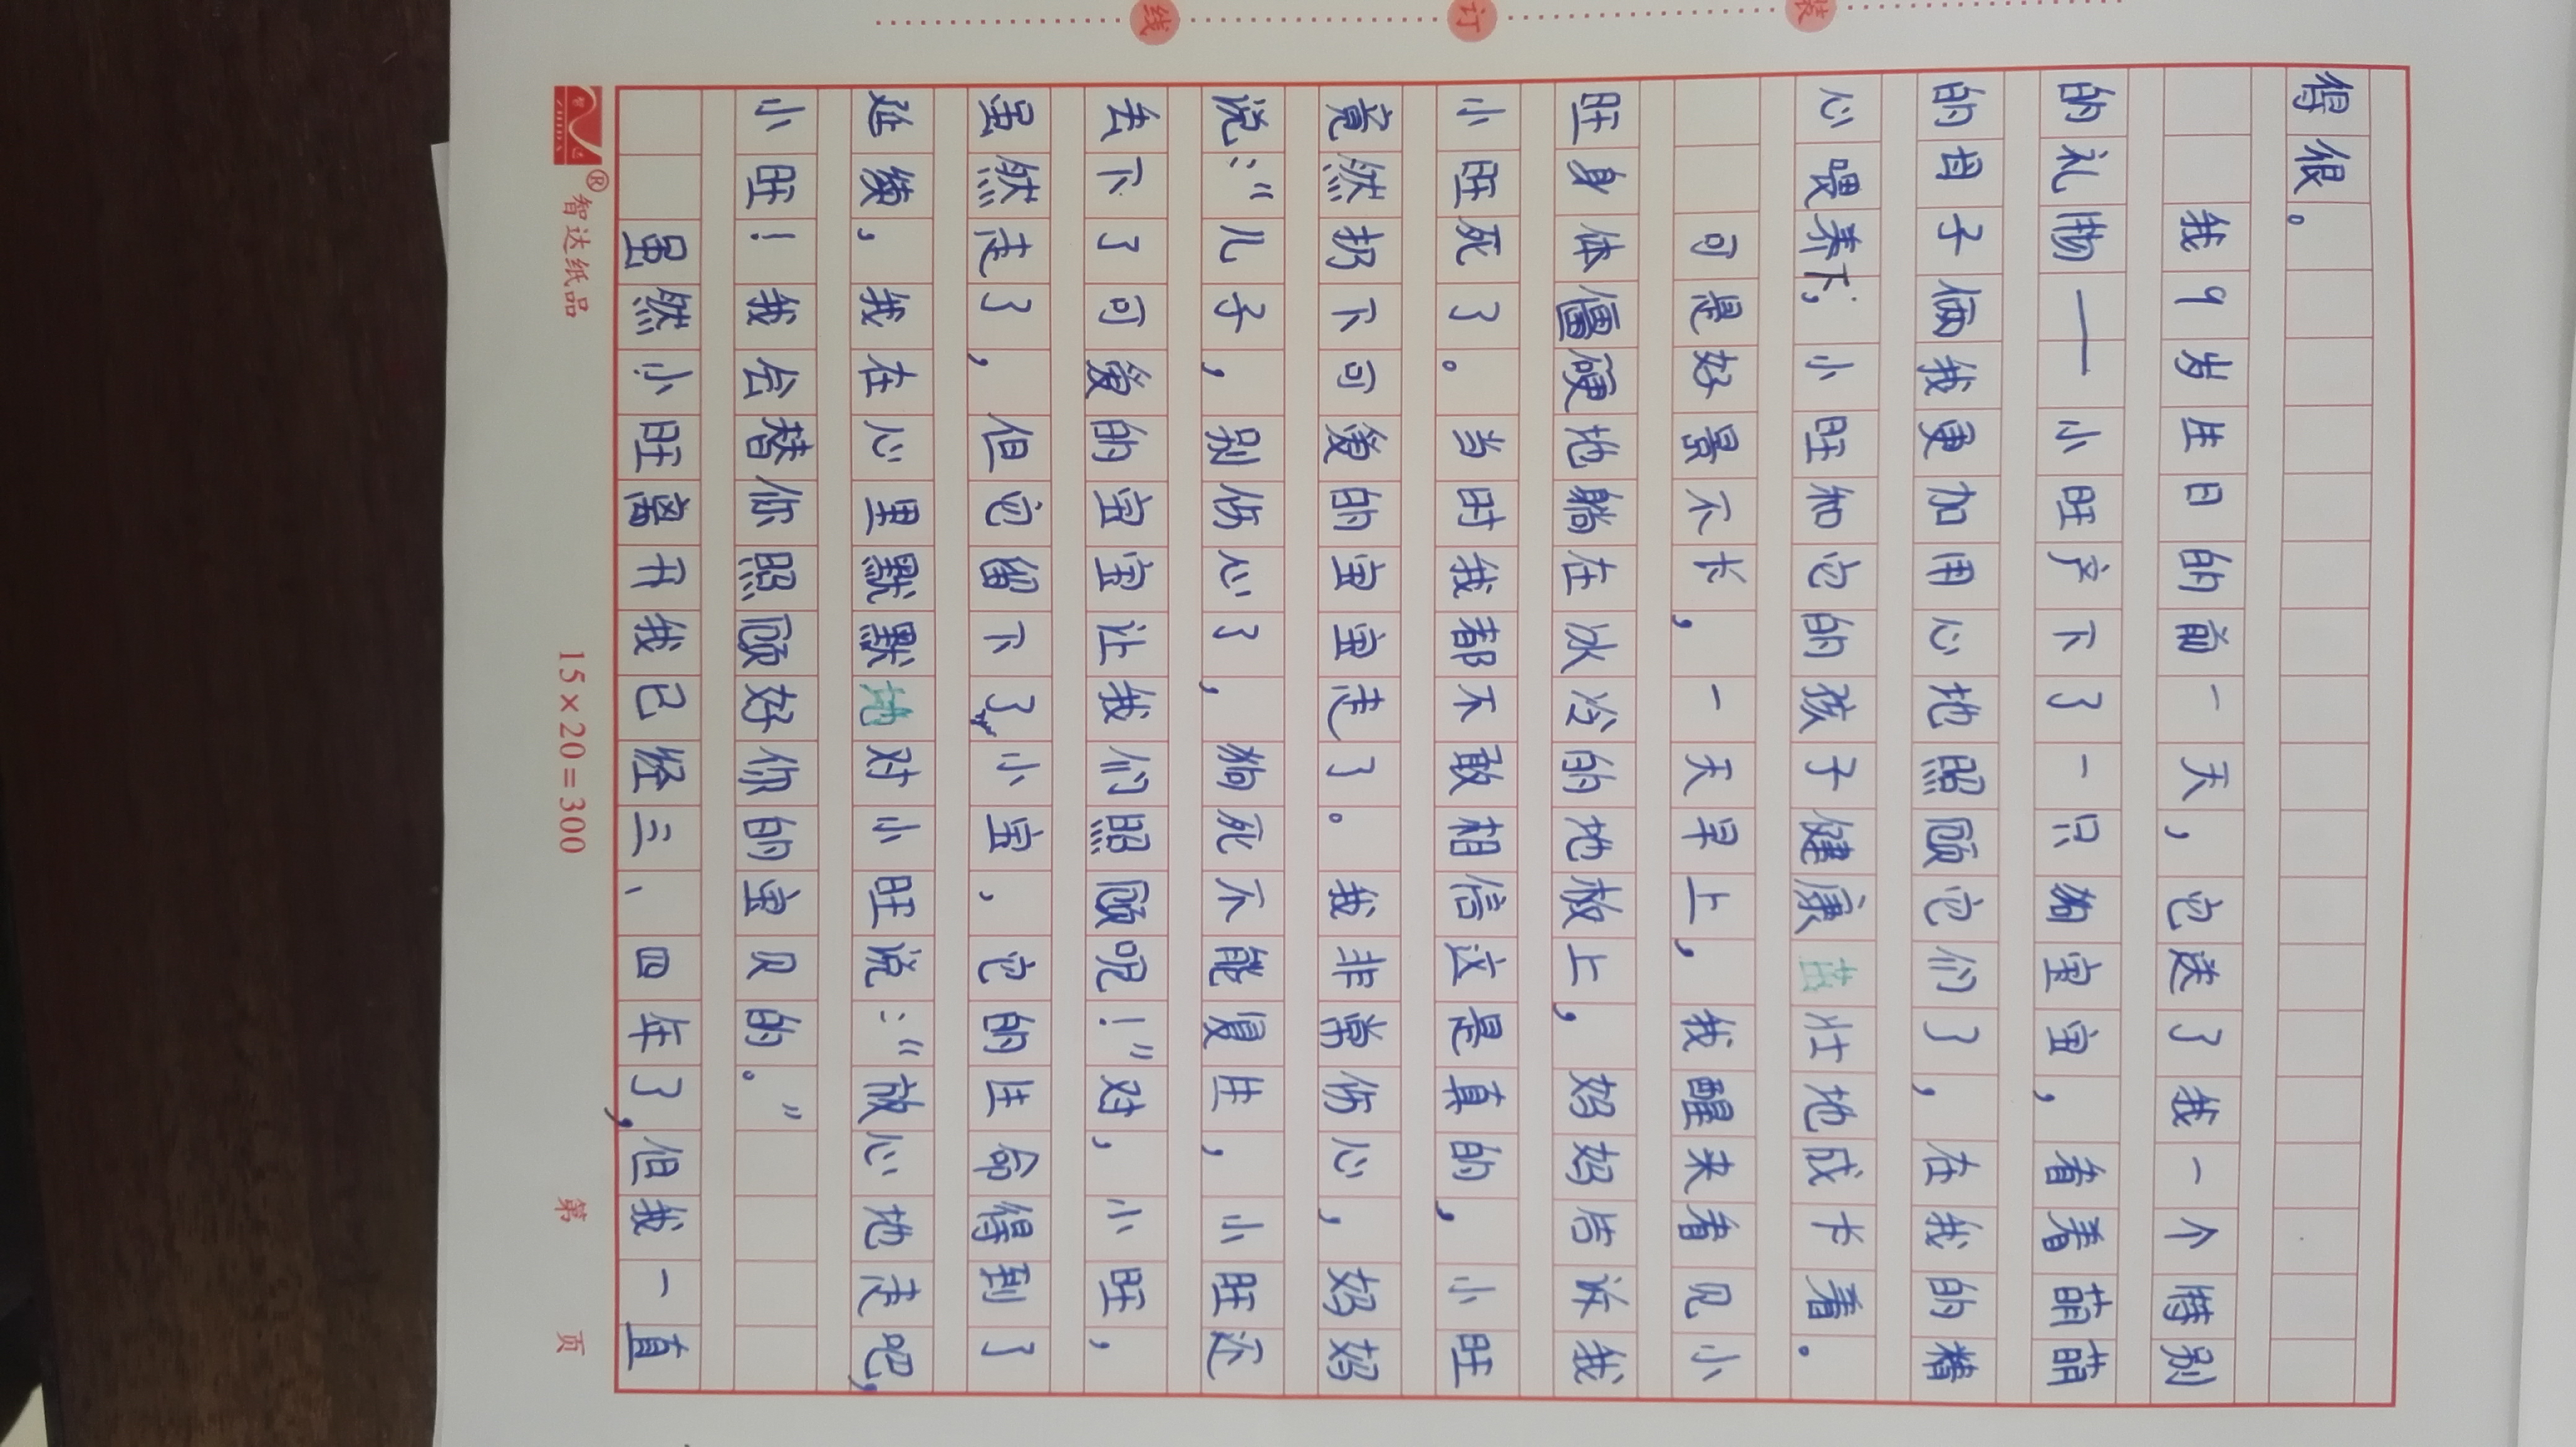 装 订 线
得很。
我9岁生日的前一天，它送了我一个特别
的礼物——小旺产下了一只狗宝宝，看着萌萌
的母子俩我更加用心地照顾它们了，在我的精
心喂养下，小旺和它的孩子健康茁壮地成长着。
可是好景不长，一天早上，我醒来看见小
旺身体僵硬地躺在冰冷的地板上，妈妈告诉我
小旺死了。当时我都不敢相信这是真的，小旺
竟然扔下可爱的宝宝走了。我非常伤心，妈妈
说：“儿子，别伤心了，狗死不能复生，小旺还
丢下了可爱的宝宝让我们照顾呢！”对，小旺，
虽然走了，但它留下了小宝，它的生命得到了
延续，我在心里默默地对小旺说：“放心地走吧，
小旺！我会替你照顾好你的宝贝的。”
虽然小旺离开我已经三、四年了，但我一直
智达纸品 15×20=300 第 页